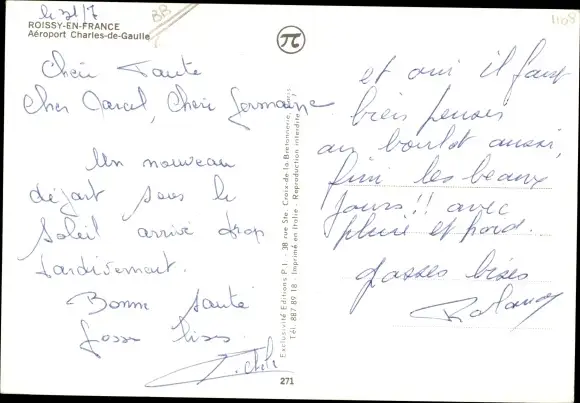 le 31/7
BB
1108
ROISSY-EN-FRANCE
Aéroport Charles-de-Gaulle
Chère Tante
Cher Marcel, Chère Germaine
Un nouveau
départ sous le
Soleil arrivé trop
tardivement.
Bonne santé
Grosses bises
271
Exclusivité Editions P.I. - 38 rue Ste-Croix-de-la-Bretonnerie,
Tél. 887 89 18 - Imprimé en Italie - Reproduction interdite
et oui il faut
bien penser
au boulot aussi,
fini les beaux
jours!! avec
pluie et froid.
grosses bises